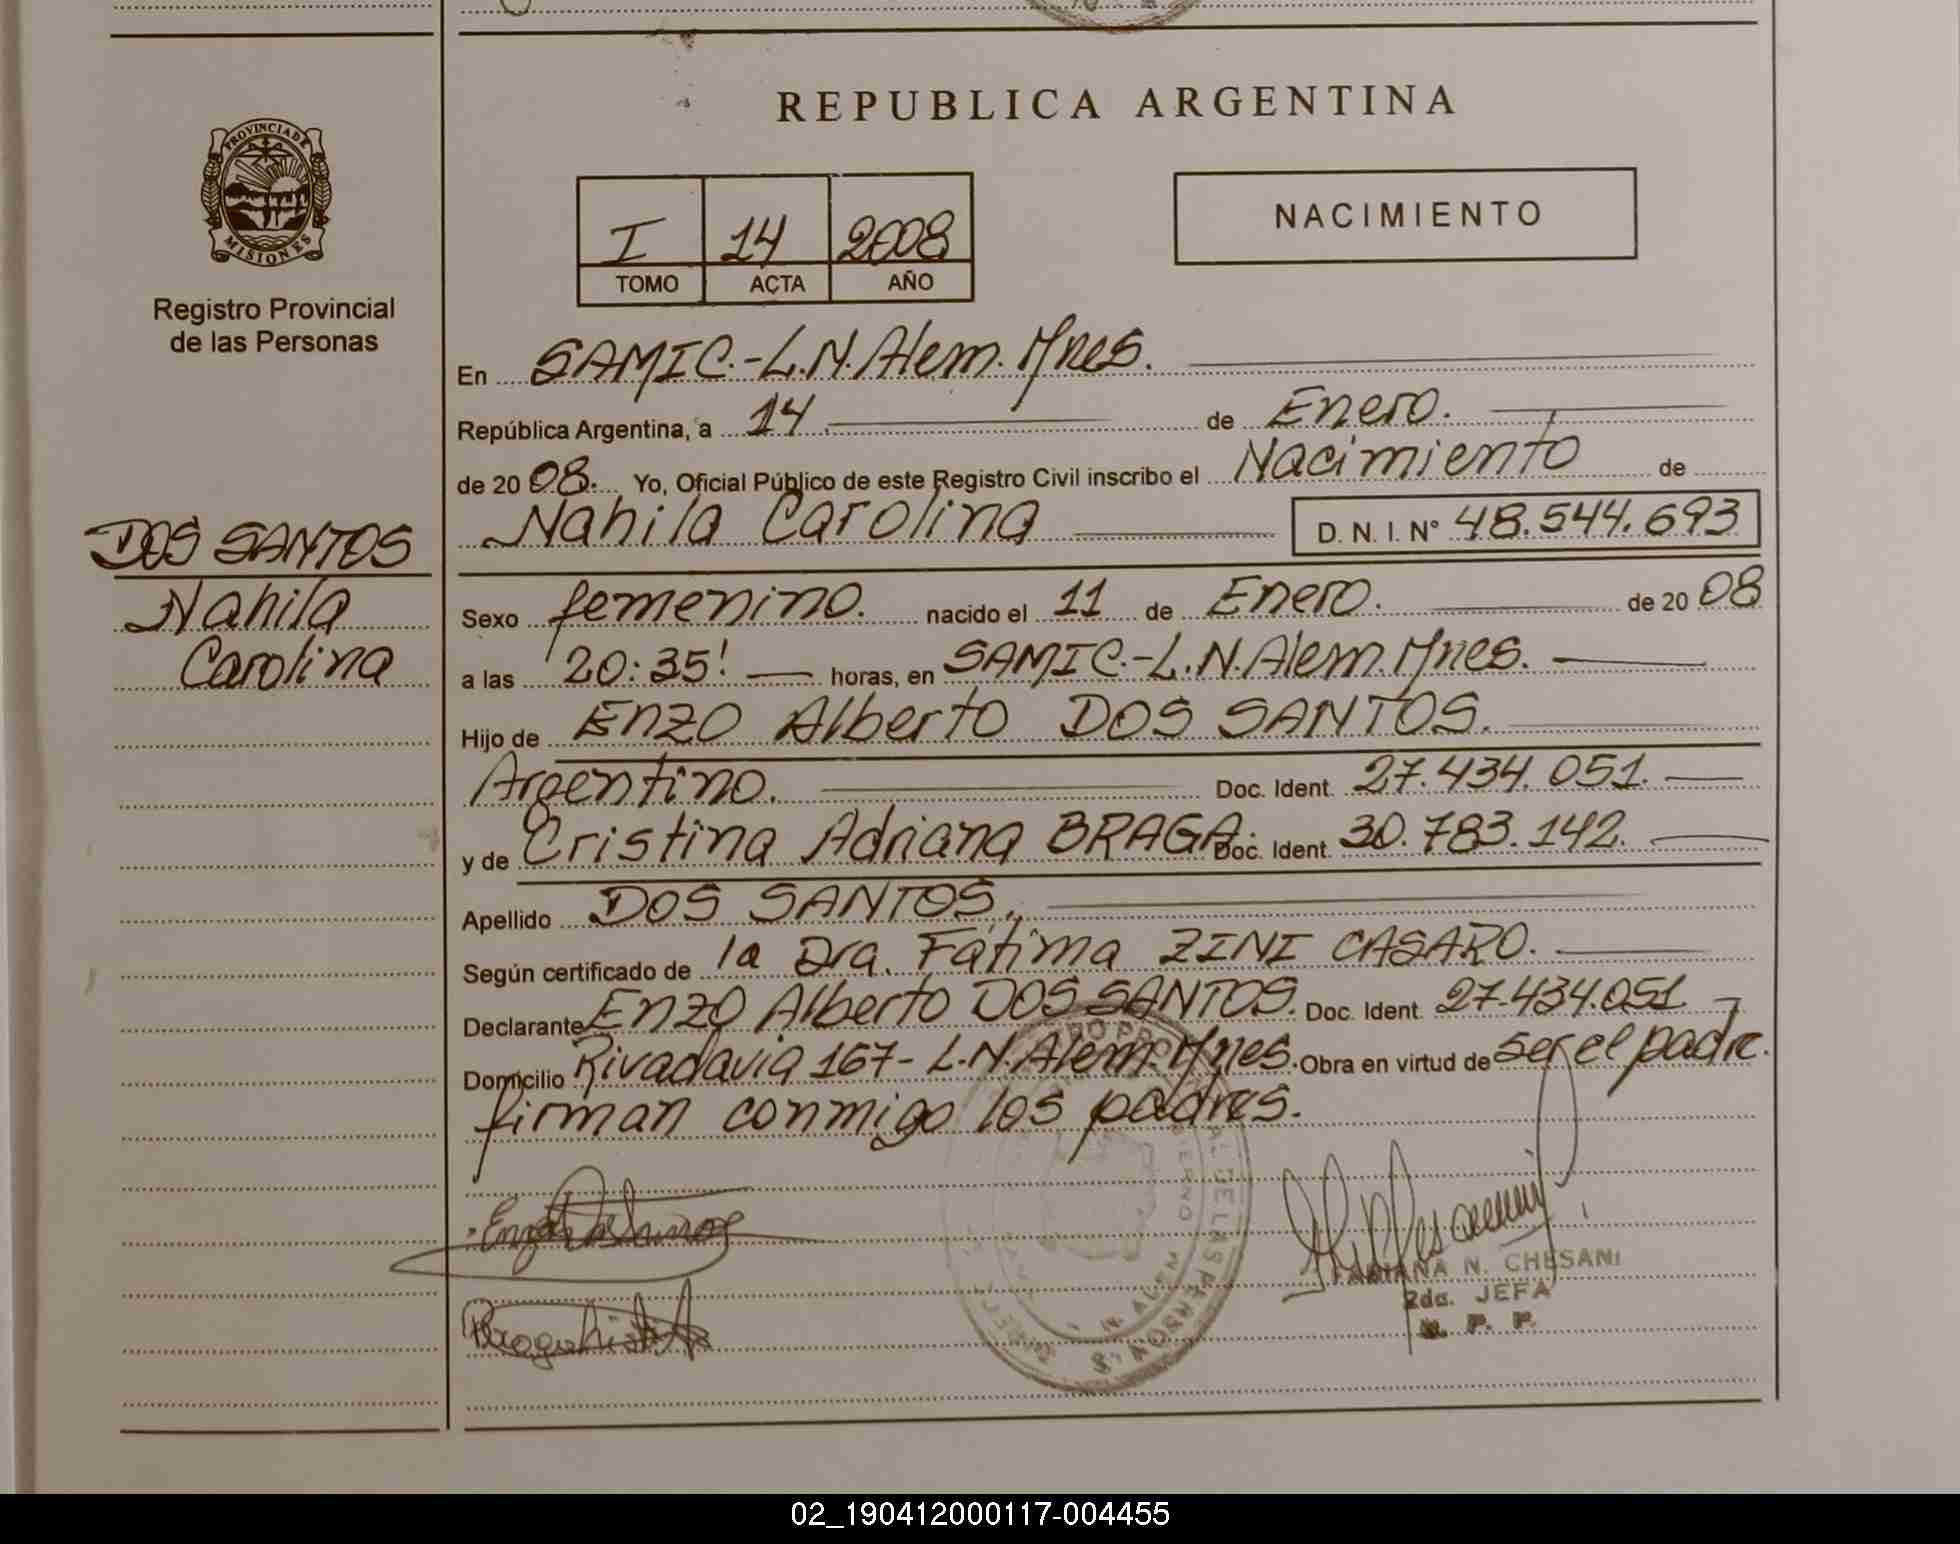 REPUBLICA ARGENTINA
PROVINCIA DE
MISIONES
Registro Provincial
de las Personas
I 14 2008
TOMO ACTA AÑO
NACIMIENTO
En SAMIC.-L.N.Alem.Mnes.
República Argentina, a 14 de Enero.
de 20 08. Yo, Oficial Público de este Registro Civil inscribo el Nacimiento de
Nahila Carolina D. N. I. N° 48.544.693
DOS SANTOS
Nahila
Carolina
Sexo femenino. nacido el 11 de Enero. de 20 08
a las 20:35! horas, en SAMIC.-L.N.Alem.Mnes.
Hijo de Enzo Alberto DOS SANTOS.
Argentino. Doc. Ident. 27.434.051.
y de Cristina Adriana BRAGA. Doc. Ident. 30.783.142.
Apellido DOS SANTOS.
Según certificado de la Dra. Fátima ZINI CASARO.
Declarante Enzo Alberto DOS SANTOS. Doc. Ident. 27.434.051
Domicilio Rivadavia 167- L.N.Alem.Mnes. Obra en virtud de ser el padre.
firman conmigo los padres.
FABIANA N. CHESANI
2da. JEFA
R. P. P.
02_190412000117-004455